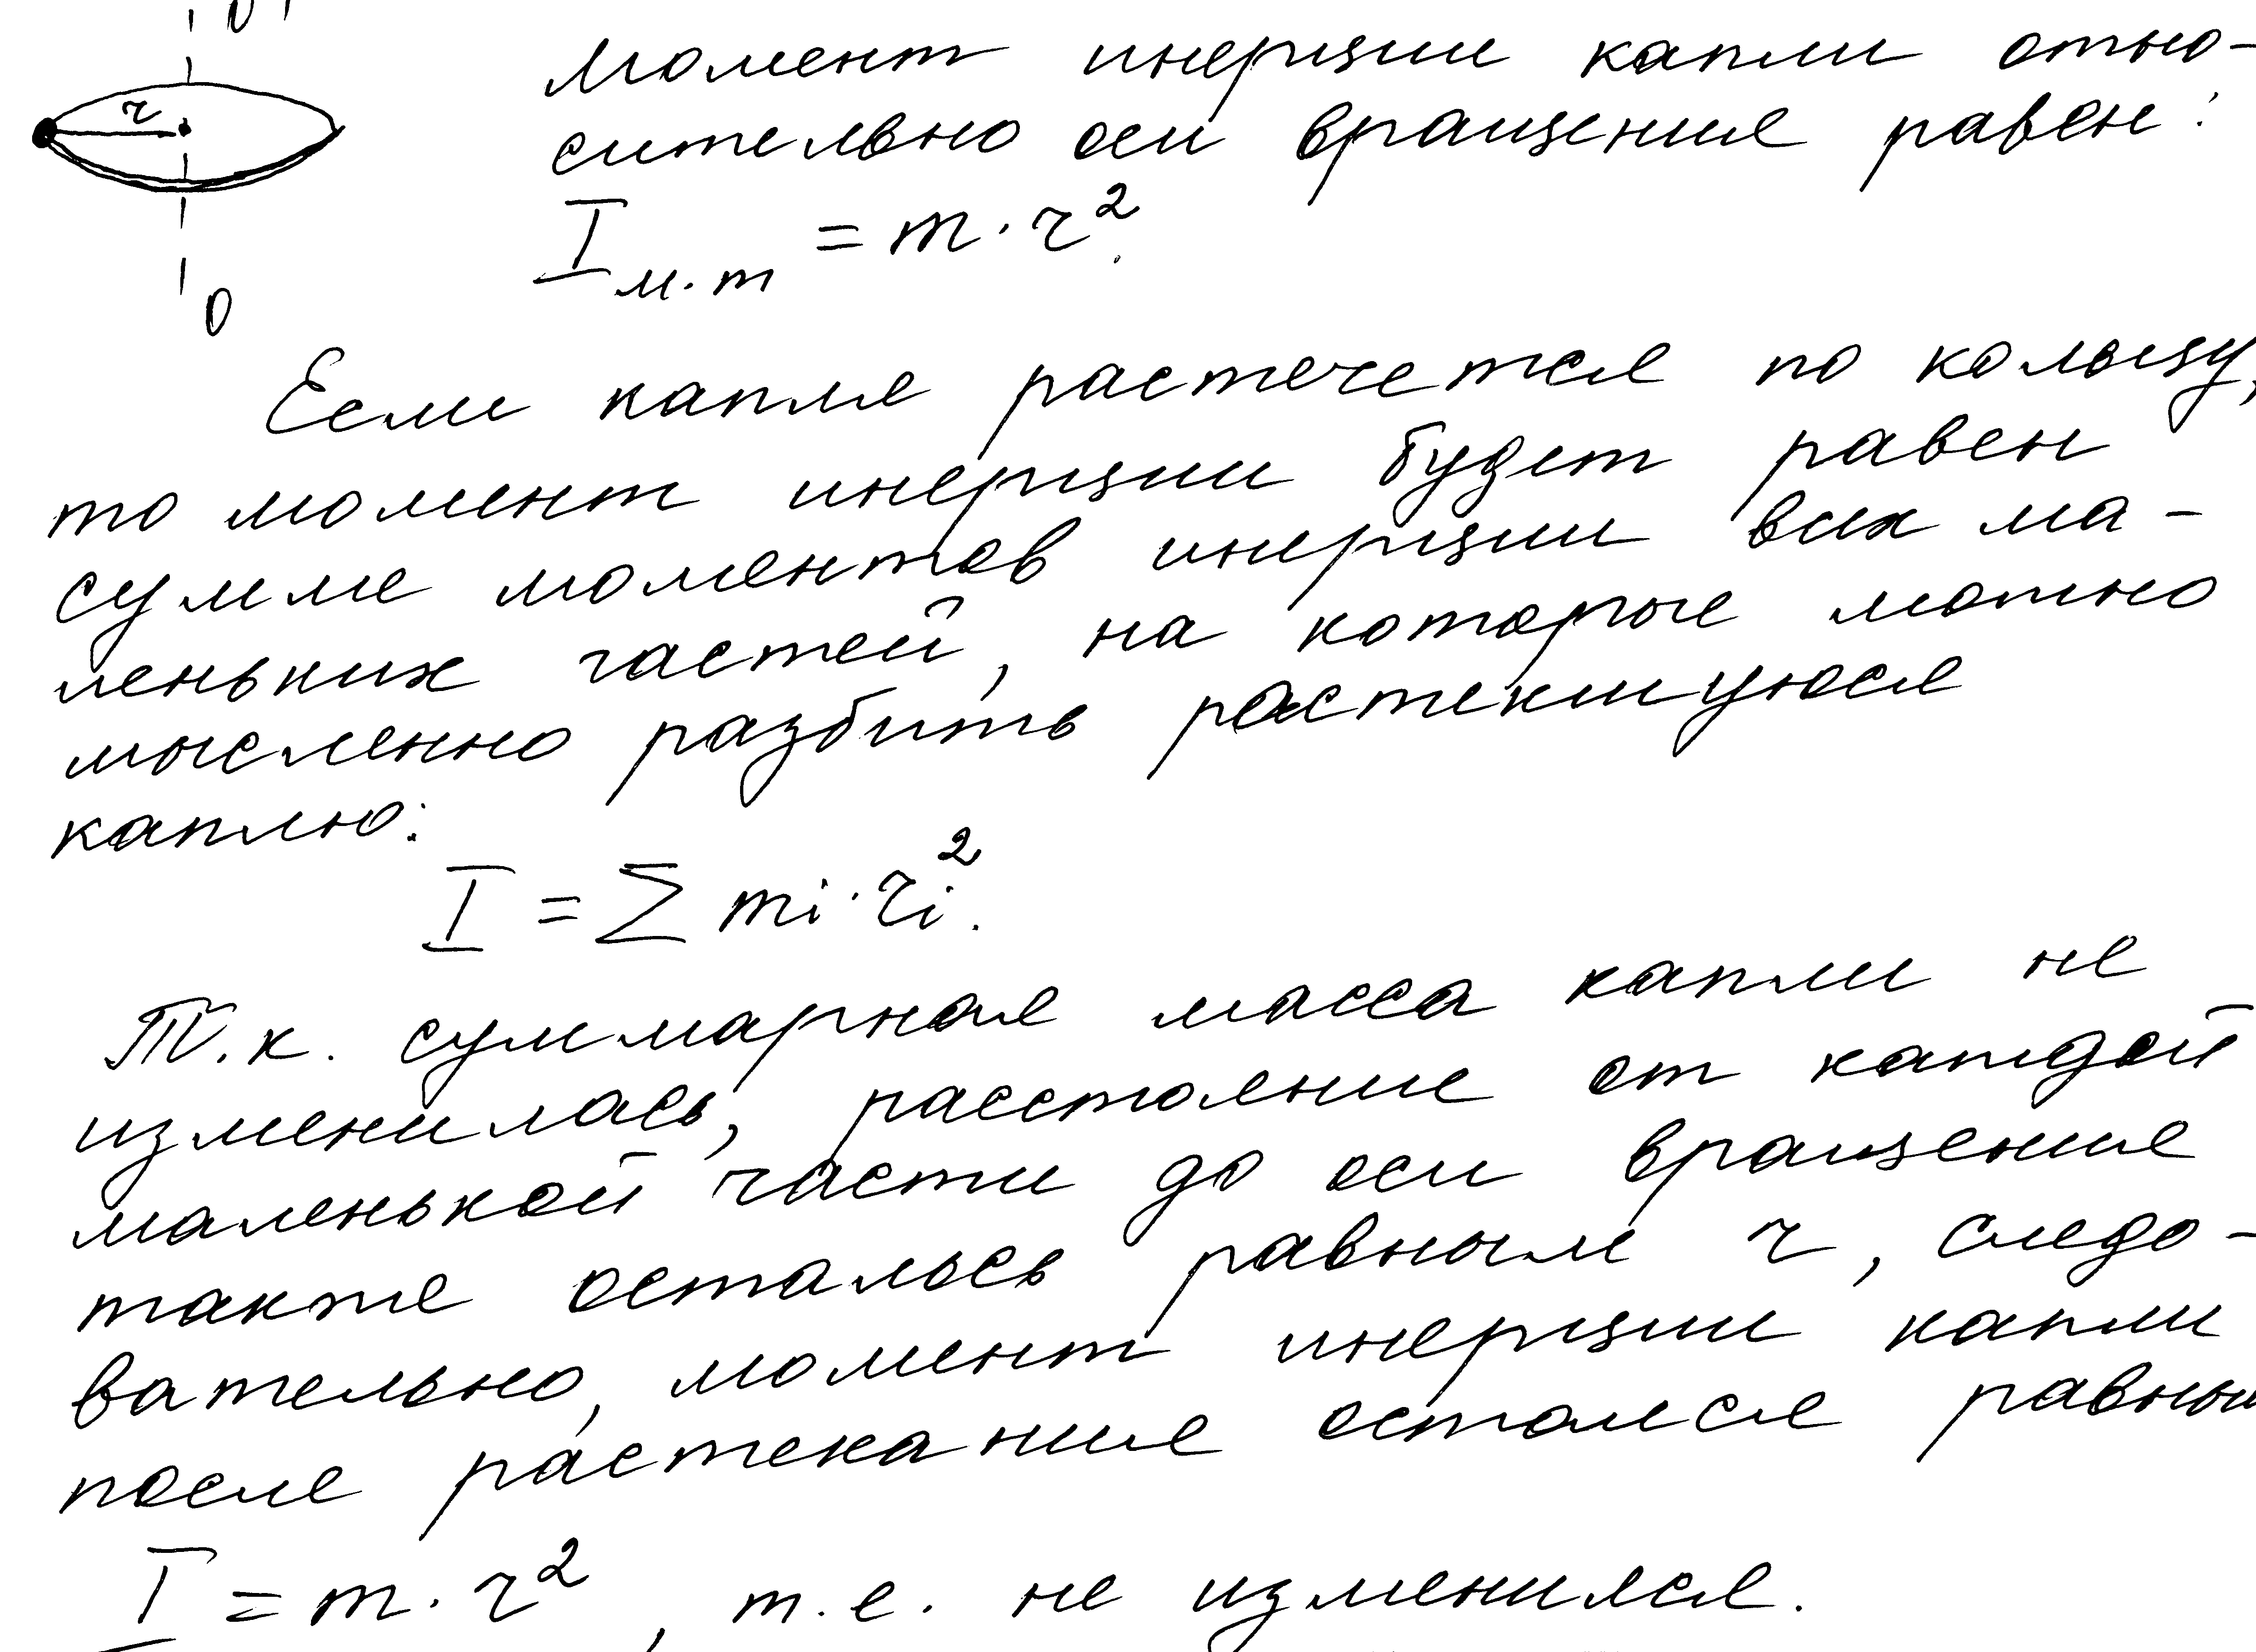 O'
r
O
момент инерции капли отно-
сительно оси вращения равен:
I м.т = m · r².
Если капля растечется по кольцу,
то момент инерции будет равен
сумме моментов инерции всех ма-
леньких частей, на которые можно
мысленно разбить растекшуюся
каплю:
I = ∑ mi · ri².
Т.к. суммарная масса капли не
изменилась, расстояние от каждой
маленькой части до оси вращения
также осталось равным r, следо-
вательно, момент инерции капли
после растекания остался равным
I = m · r², т.е. не изменился.